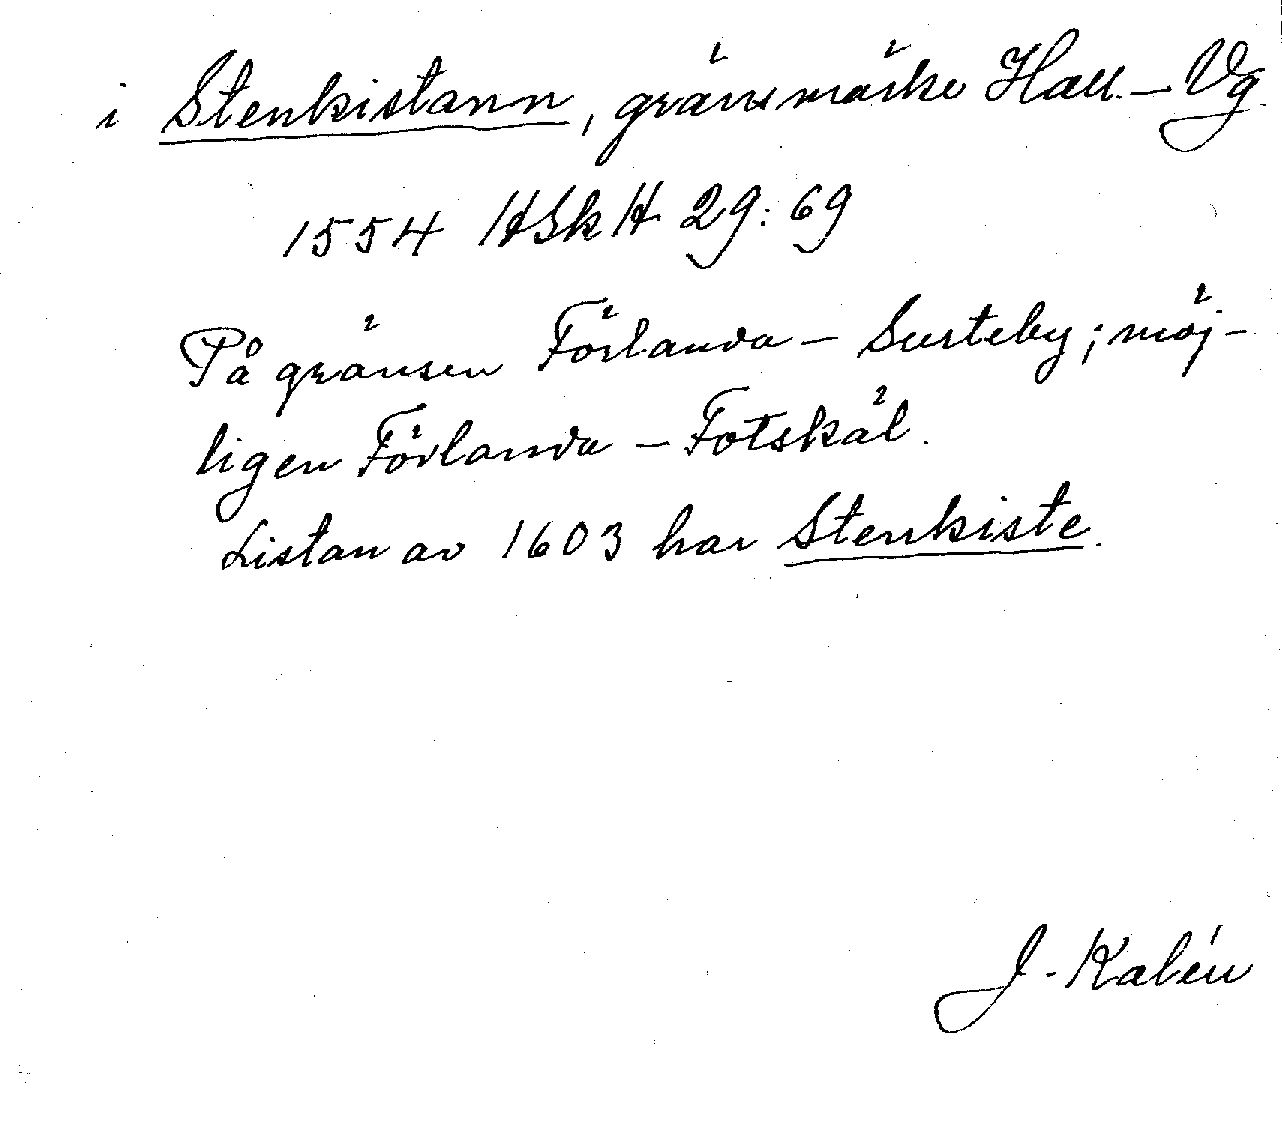 i Stenkistann, gränsmärke Hall.–Vg.
1554 HSkH 29:69
På gränsen Förlanda – Surteby; möj-
ligen Förlanda – Fotskäl.
Listan av 1603 har Stenkiste.
J. Kalén